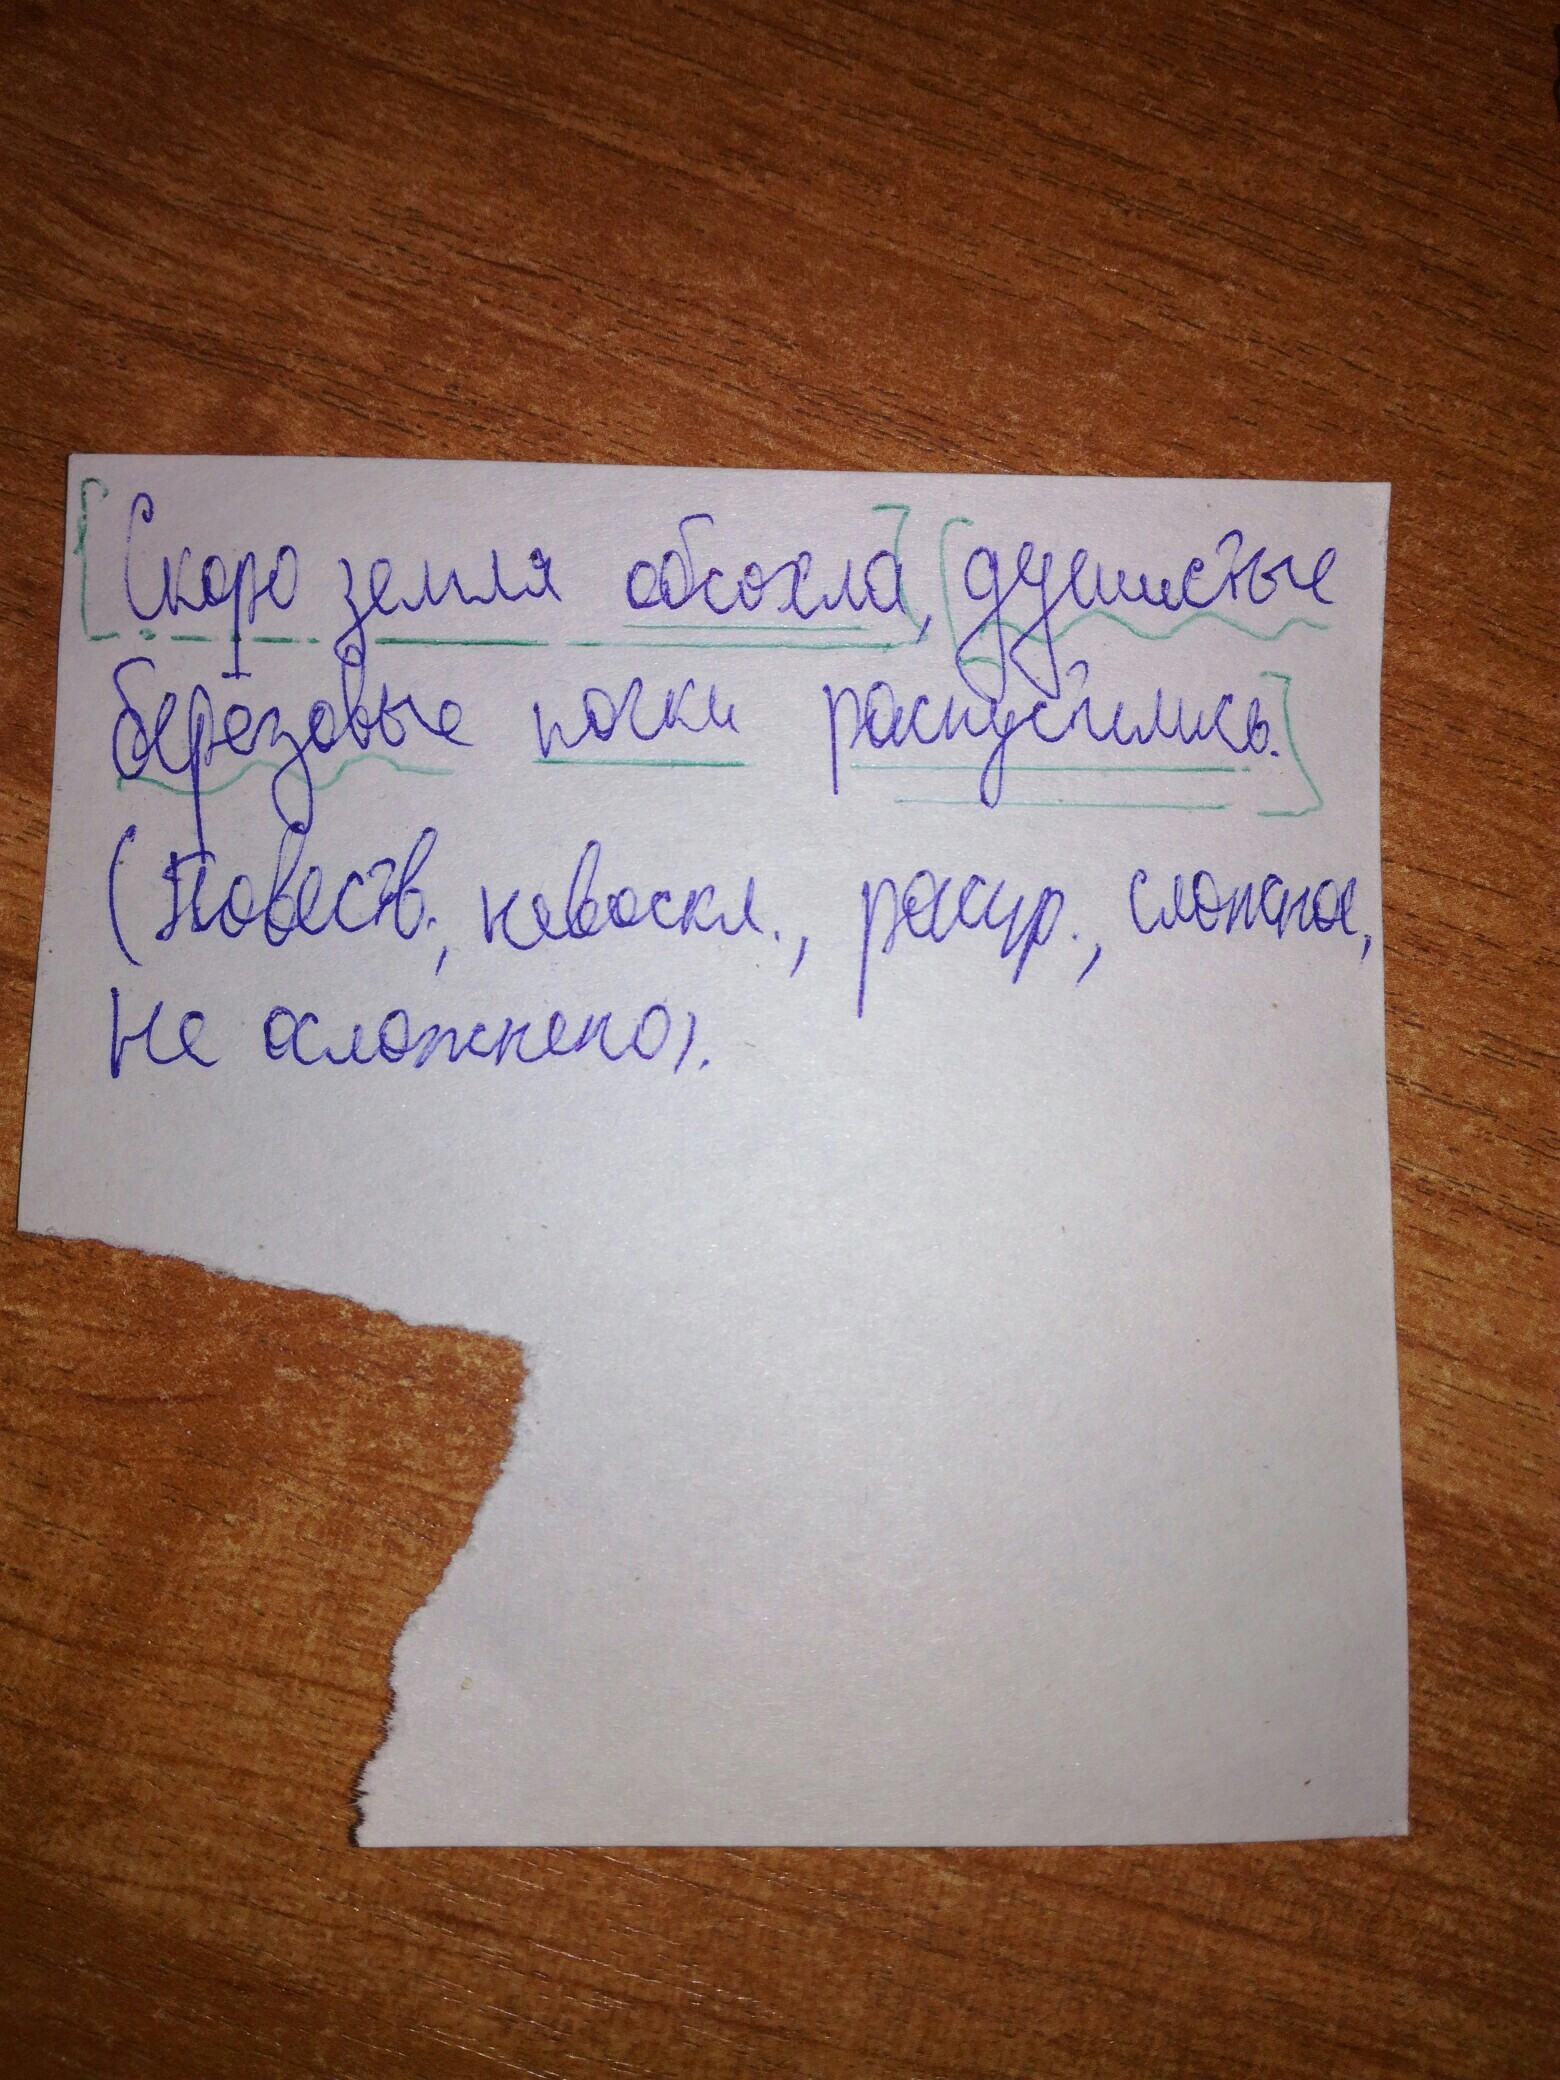 [Скоро земля обсохла], [душистые
берёзовые почки распустились.]
(Повеств., невоскл., распр., сложное,
не осложнено).